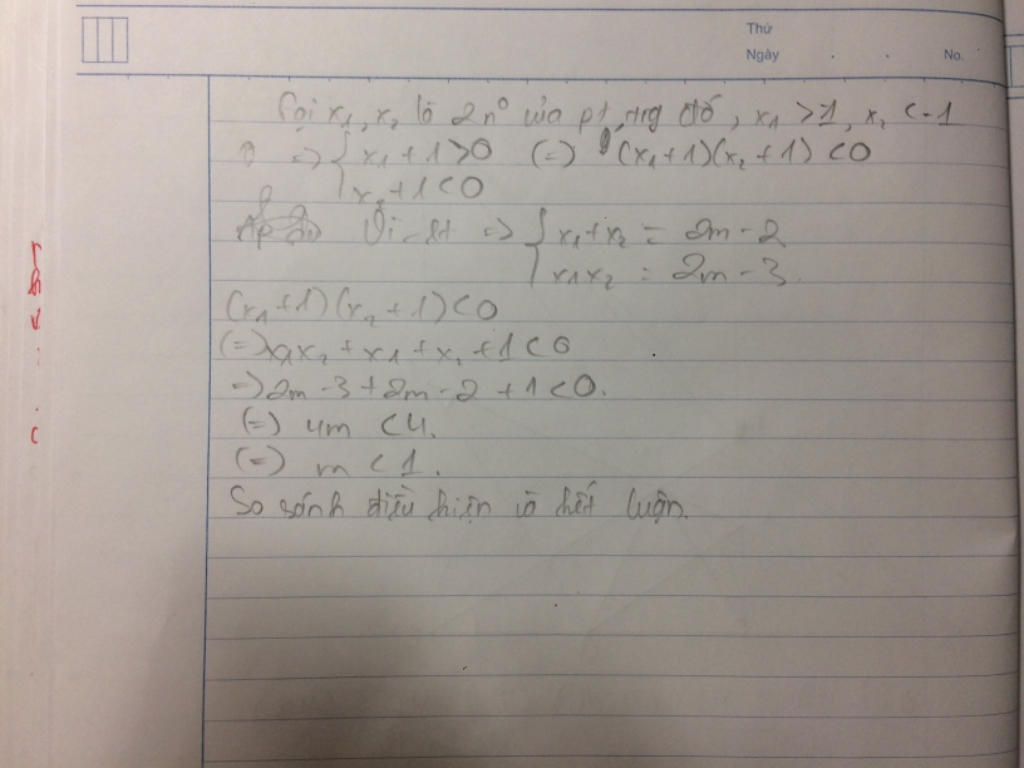 Thứ
Ngày . . No.
Gọi x₁, x₂ là 2n⁰ của pt, trg đó, x₁ > 1, x₂ < -1
=> { x₁ + 1 > 0 (=) (x₁+1)(x₂+1) < 0
x₂ + 1 < 0
Vi-ét => { x₁+x₂ = 2m - 2
x₁x₂ = 2m - 3.
(x₁+1)(x₂+1) < 0
(=) x₁x₂ + x₁ + x₂ + 1 < 0
=) 2m - 3 + 2m - 2 + 1 < 0.
(=) 4m < 4.
(=) m < 1.
So sánh điều kiện và kết luận.